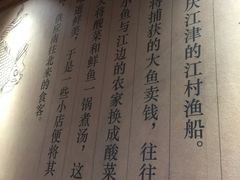 庆江津的江村渔船。
将捕获的大鱼卖钱，往往
小鱼与江边的农家换成酸菜
将酸菜和鲜鱼一锅煮汤，这
道鲜美，于是一些小店便将其
款待往来的食客。